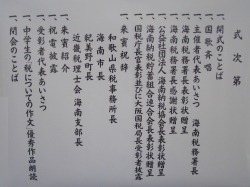 式次第
一、開式のことば
一、国歌斉唱
一、主催者代表あいさつ 海南税務署長
一、海南税務署長感謝状贈呈
一、海南税務署長表彰状贈呈
一、公益社団法人海南納税協会長表彰状贈呈
一、海南納税貯蓄組合連合会長表彰状贈呈
一、国税庁長官表彰並びに大阪国税局長受彰者披露
一、来賓祝辞
和歌山県税事務所長
海南市長
紀美野町長
近畿税理士会海南支部長
一、来賓紹介
一、祝電披露
一、受彰者代表あいさつ
一、中学生の「税についての作文」優秀作品朗読
一、閉会のことば